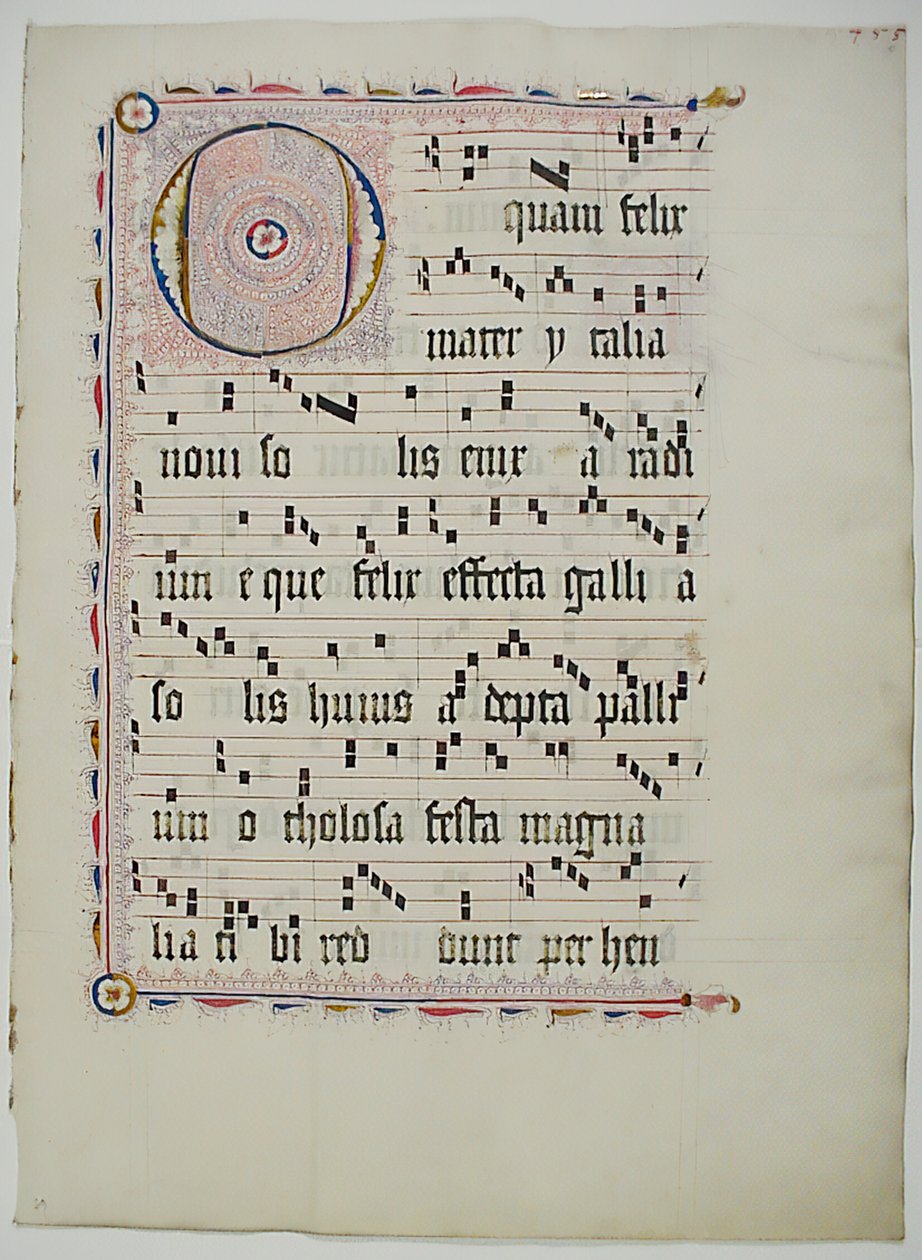 755
O quam felix
mater y talia
noui so lis enix a radi
um e que felix effecta galli a
so lis huius a depta palli
um o tholosa festa magna
lia ti bi red dunt per hen